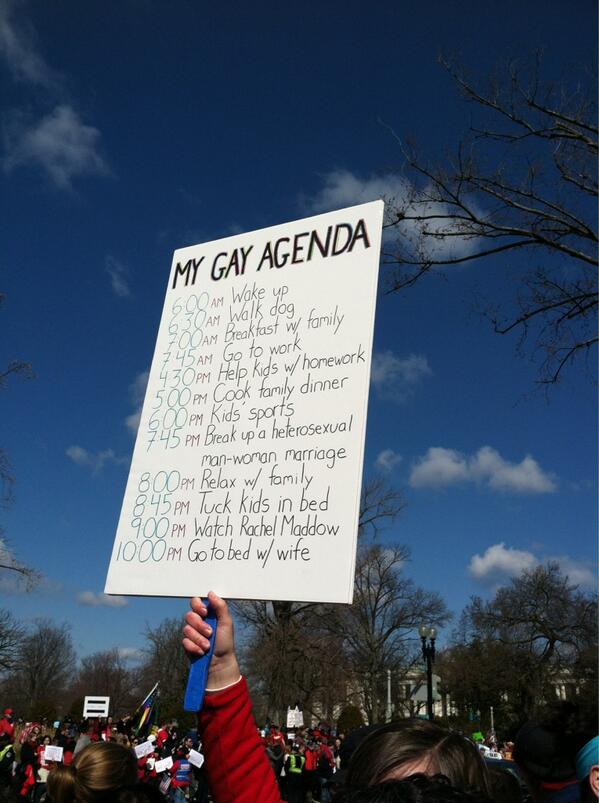 MY GAY AGENDA
6:00 AM Wake up
6:30 AM Walk dog
7:00 AM Breakfast w/ family
7:45 AM Go to work
4:30 PM Help kids w/ homework
5:00 PM Cook family dinner
6:00 PM Kids' sports
7:45 PM Break up a heterosexual
man-woman marriage
8:00 PM Relax w/ family
8:45 PM Tuck kids in bed
9:00 PM Watch Rachel Maddow
10:00 PM Go to bed w/ wife